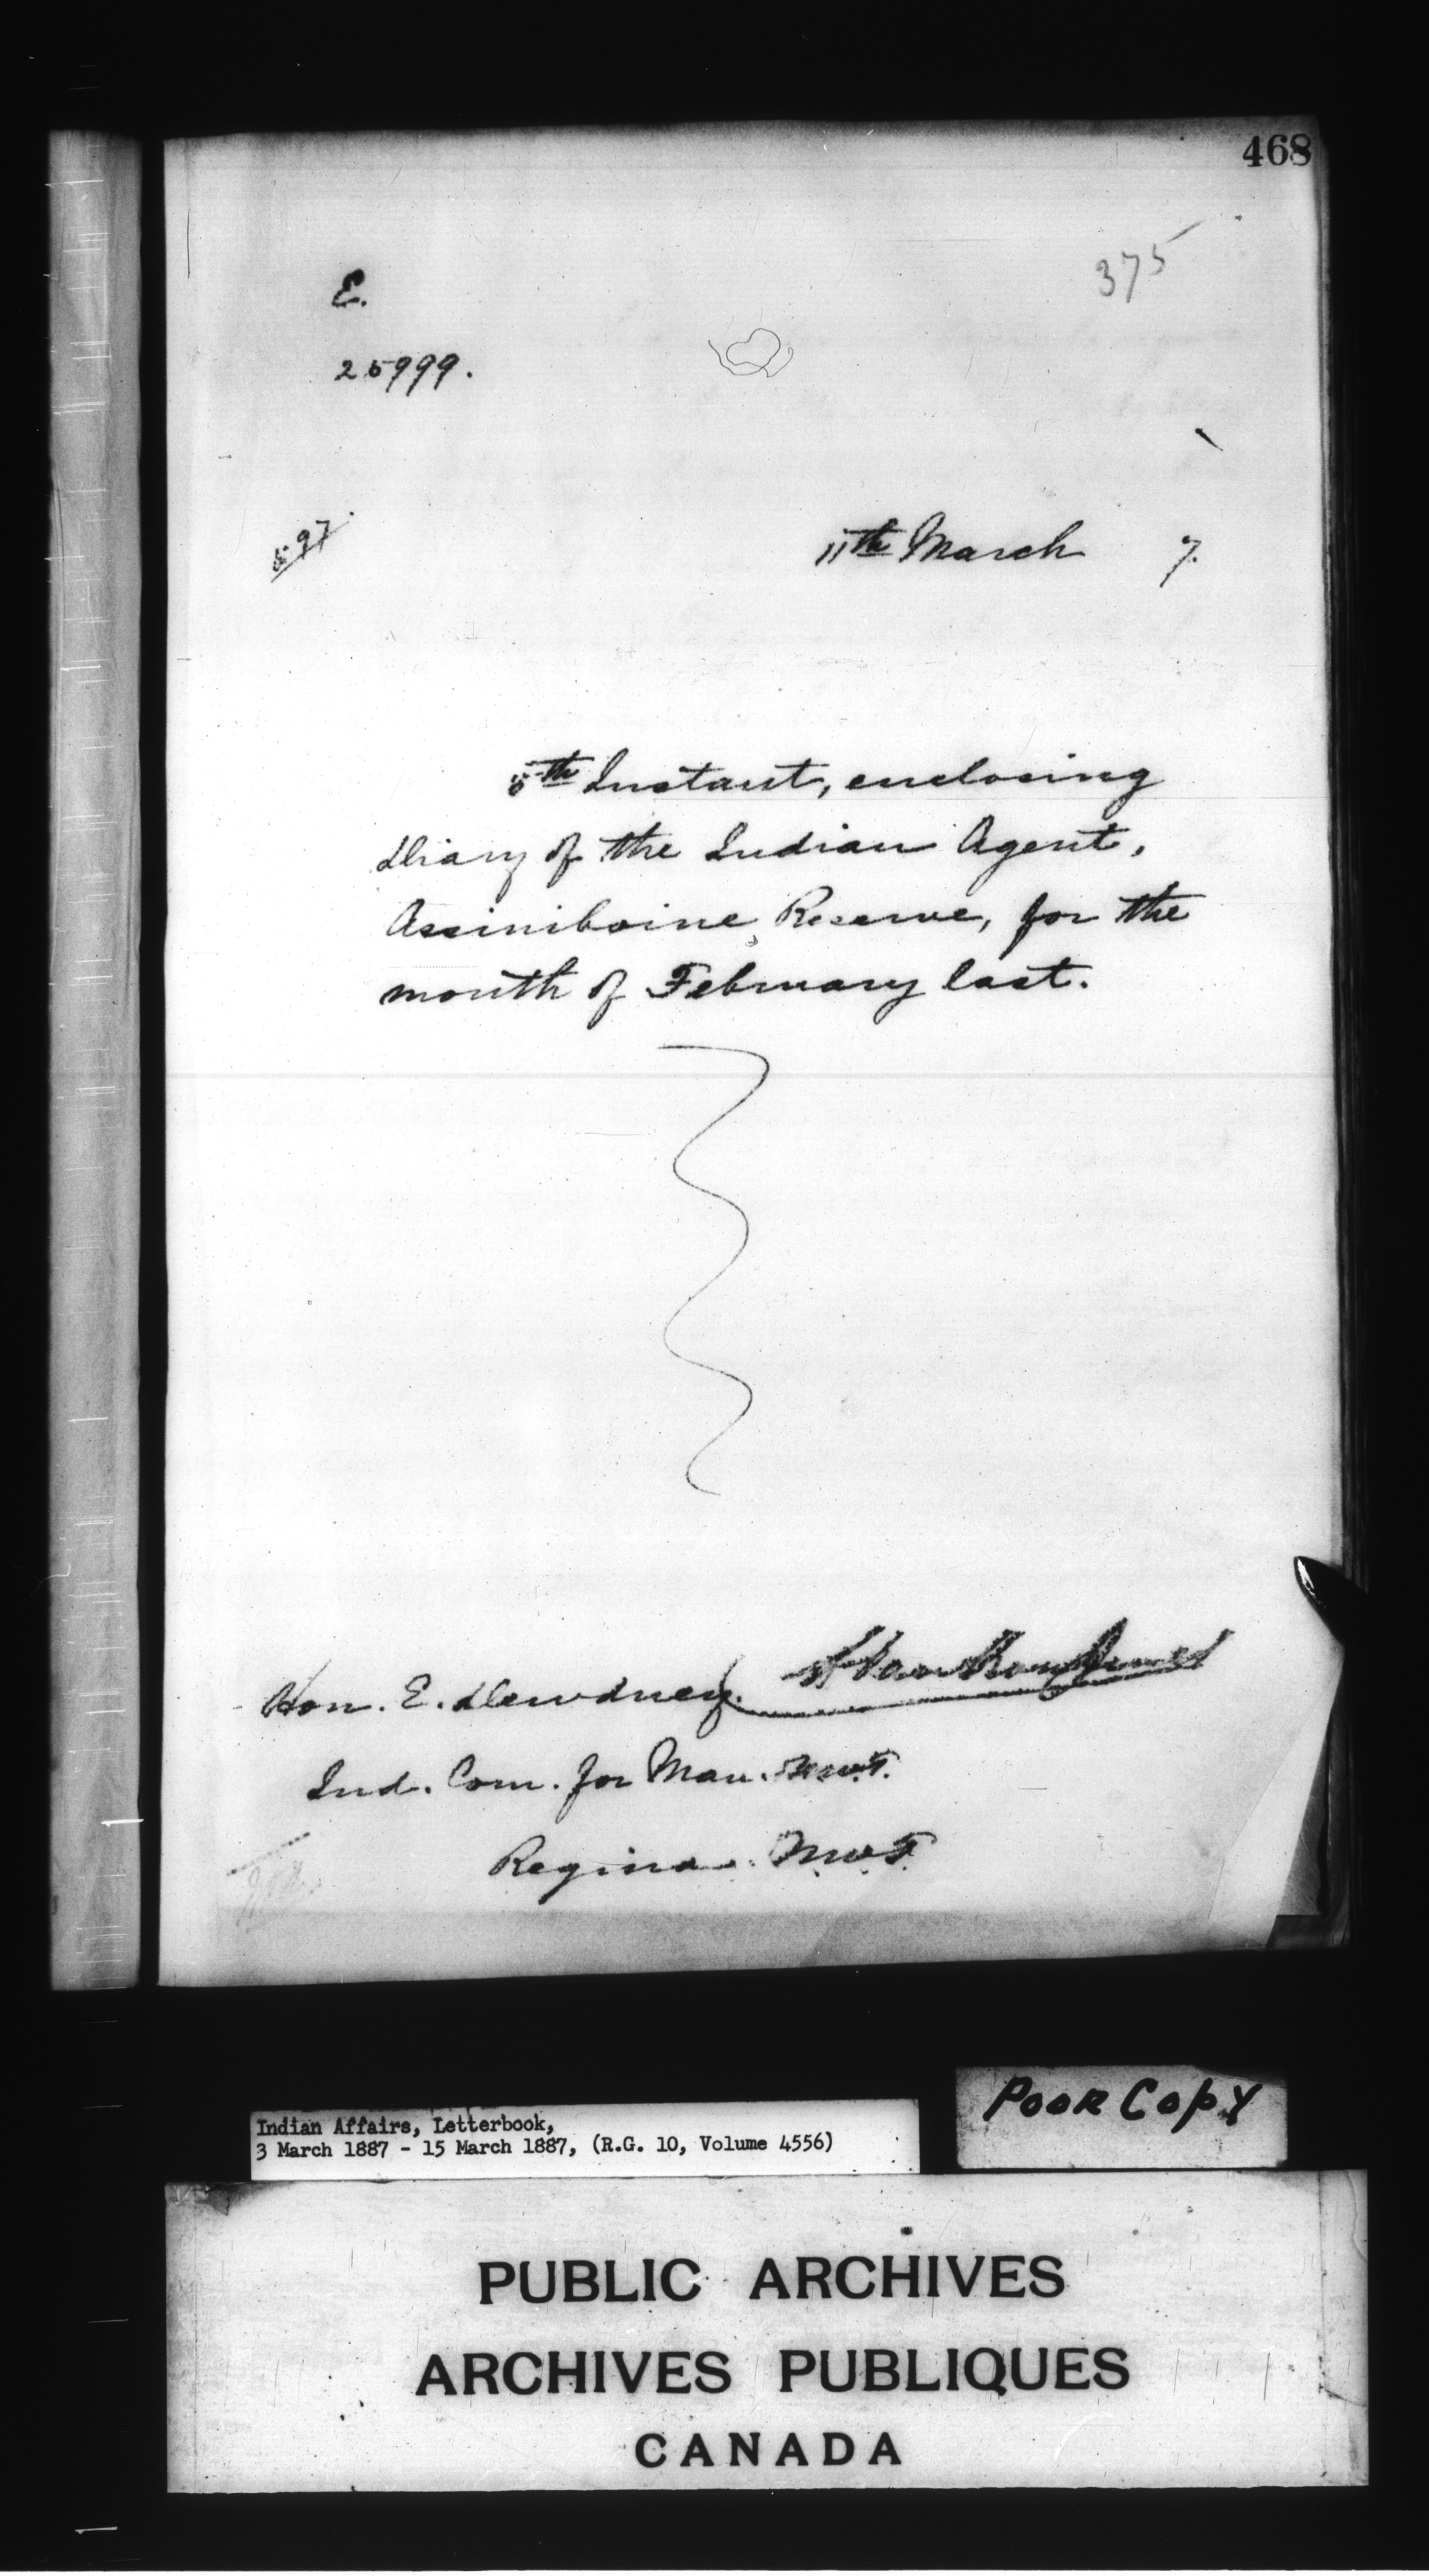 468
375
E.
25999.
597.
11th March 7.
5th Instant, enclosing
Diary of the Indian Agent,
Assiniboine Reserve, for the
month of February last.
Hon. E. Dewdney.
Ind. Com. for Man. & N.W.T.
Regina. N.W.T.
Indian Affairs, Letterbook,
3 March 1887 - 15 March 1887, (R.G. 10, Volume 4556)
POOR COPY
PUBLIC ARCHIVES
ARCHIVES PUBLIQUES
CANADA